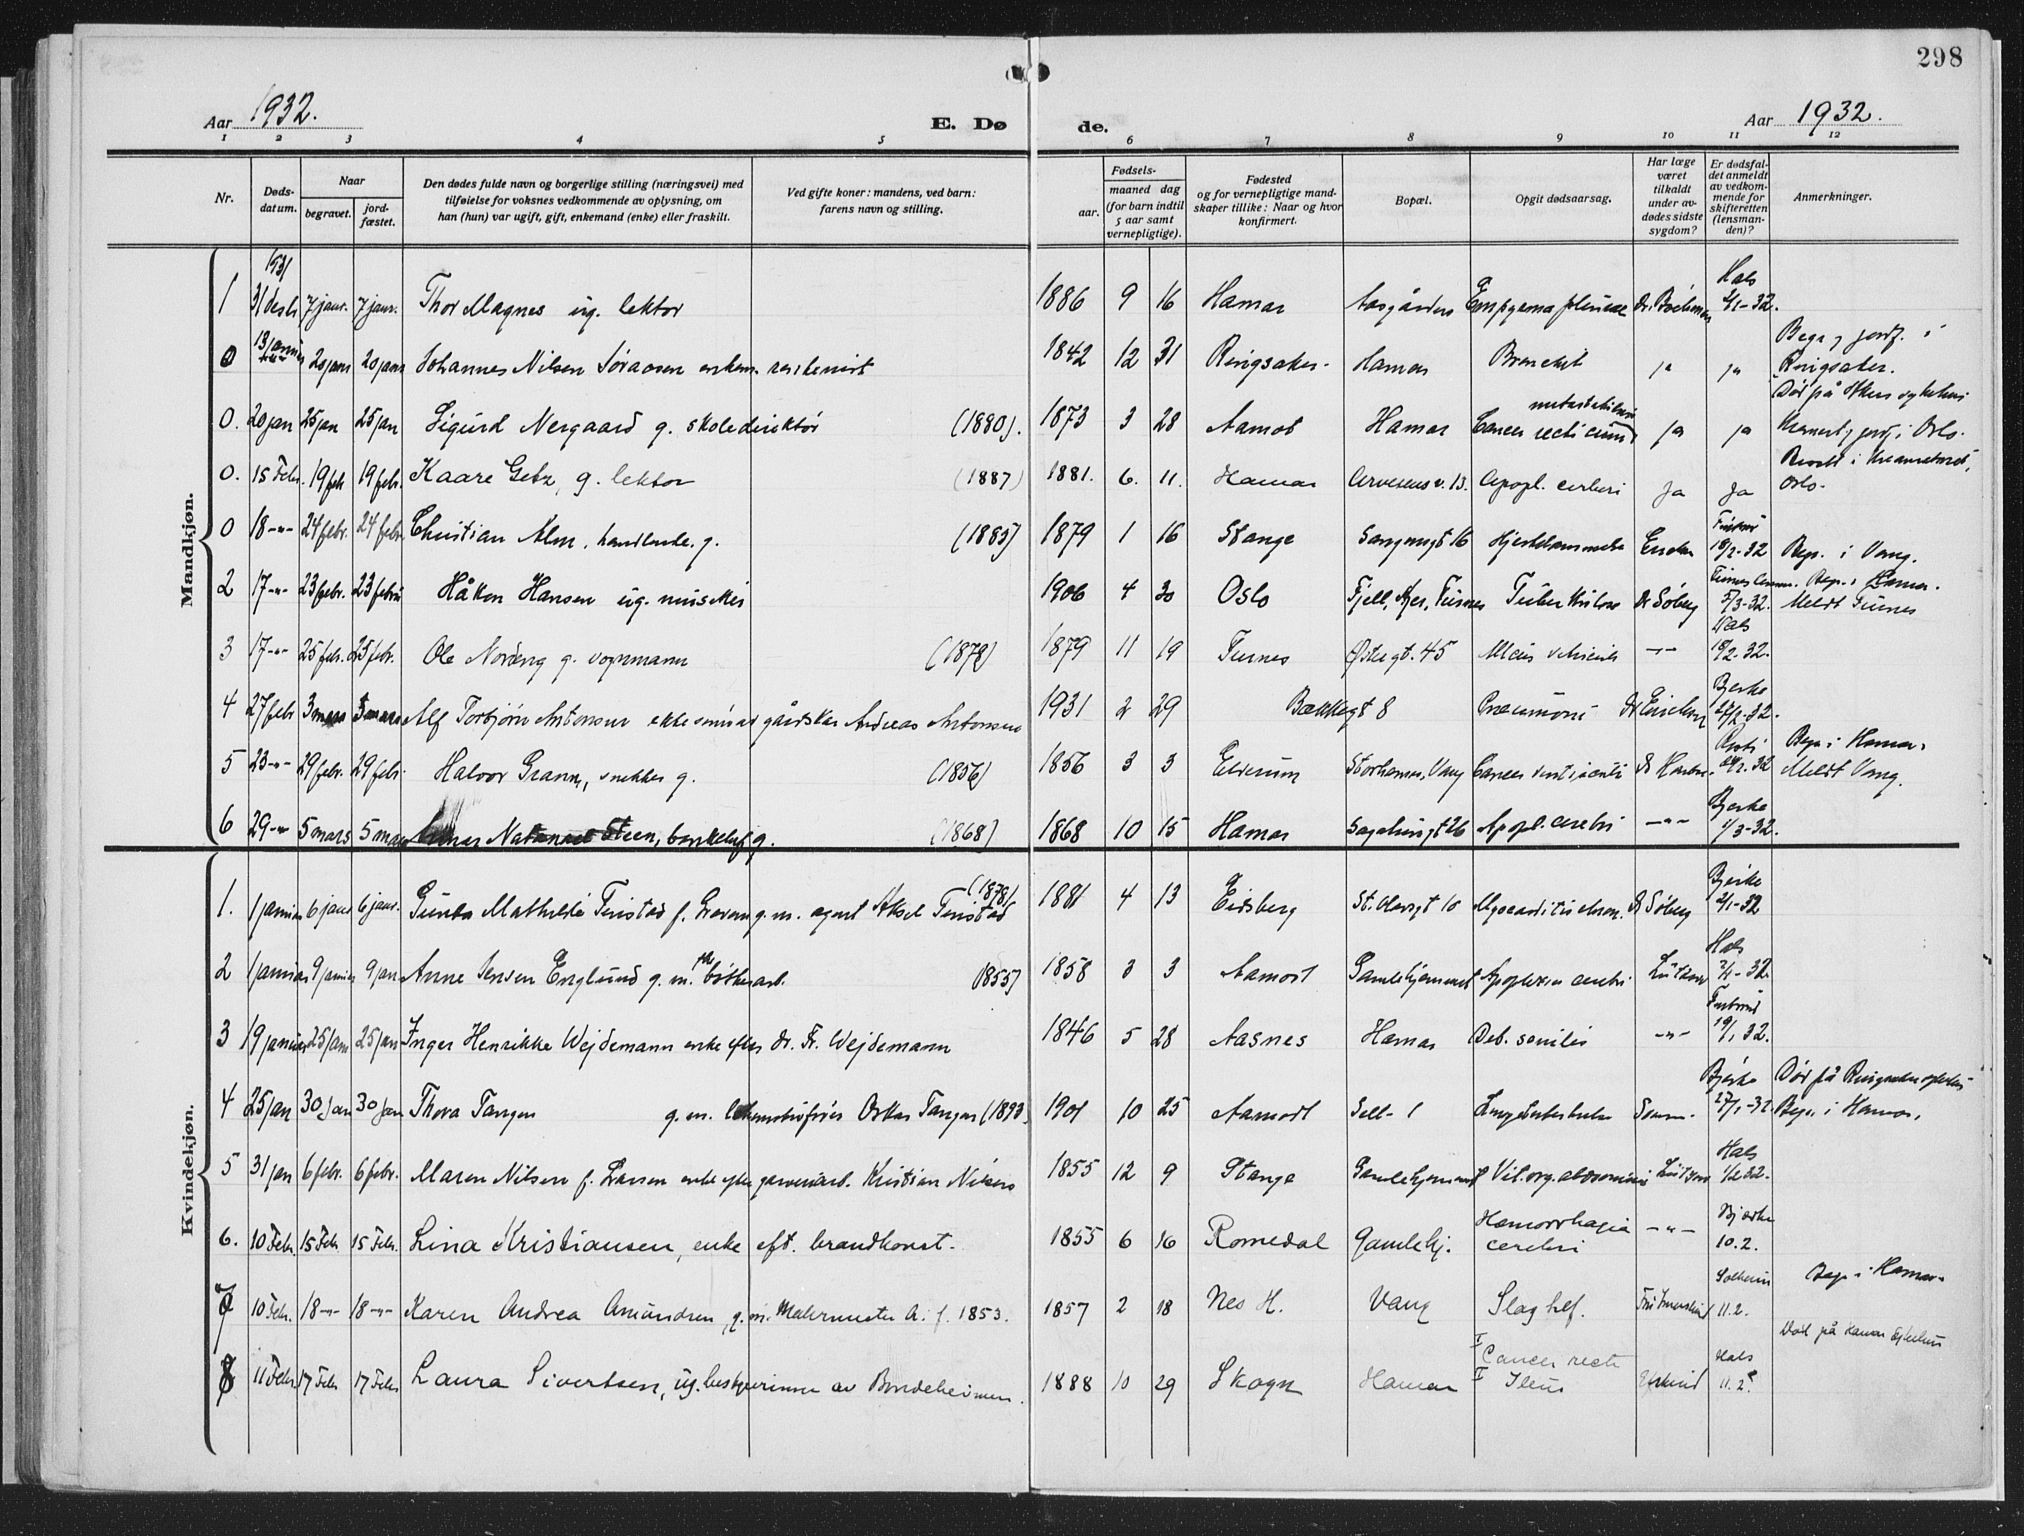 298
Aar 1932. E. Dø de. Aar 1932.
1 2 3 4 5 6 7 8 9 10 11 12
Nr.
Døds-
datum.
Naar
begravet.
jord-
fæstet.
Den dødes fulde navn og borgerlige stilling (næringsvei) med
tilføielse for voksnes vedkommende av oplysning, om
han (hun) var ugift, gift, enkemand (enke) eller fraskilt.
Ved gifte koner: mandens, ved barn:
farens navn og stilling.
Fødsels-
aar.
maaned dag
(for barn indtil
5 aar samt
vernepligtige).
Fødested
og for vernepligtige mand-
skaper tillike: Naar og hvor
konfirmert.
Bopæl.
Opgit dødsaarsag.
Har læge
været
tilkaldt
under av-
dødes sidste
sygdom?
Er dødsfal-
det anmeldt
av vedkom-
mende for
skifteretten
(lensman-
den)?
Anmerkninger.
Mandkjøn.
1931
1 31 desbr 7 janr. 7 janr. Thor Magnes ug. lektor 1886 9 16 Hamar Aasgården Empyema pleurae Hals 2/1-32.
0 13 januar 20 jan 20 jan Johannes Nilsen enkem. 1842 12 31 Ringsaker Hamar Bronchit ja ja Begr. j jordf. i Ringsaker.
0. 20 jan 25 jan 25 jan Sigurd Nergaard g. skoledirektør (1880). 1873 3 28 Aamot Hamar Cancer recti ja ja Død på Akers sykehus
i Oslo.
0. 15 Febr. 19 feb 19 febr. Kaare Getz, g. lektor (1887) 1881. 6. 11. Hamar v. 13. Apopl. cerebri Ja Ja Oslo.
0 18-"- 24 febr. 24 febr. Christian Alm, handlende. g. (1883) 1879 1 16 Stange 16 Hjertelammelse 18/2-32 Begr. i Vang.
2 17-"- 23 febr. 23 febr Håkon Hansen ug. musiker 1906 4 30 Oslo Fjell, Furnes Tuberkulose Dr Søberg 5/3-32. Begr. i Hamar.
Meldt Furnes
3 17-"- 25 febr. 25 febr. Ole Nordeng g. vognmann (1878) 1879 11 19 Furnes Østregt. 45 Ulcus ventriculi -"- Hals 18/2-32.
4 27 febr 3 mars 3 mars Alf Torbjørn Antonsen gårdskar Andreas Antonsen 1931 2 29 Bækkegt 8 Pneumoni Dr Erichsen Bjerke
5 23-"- 29 febr. 29 febr. Halvor Grann, snekker g. (1856) 1856 3 3 Elverum Storhamar, Vang Cancer ventriculi Begr. i Hamar.
Meldt Vang.
6 29-"- 5 mars 5 mars Natanael Steen, g. (1868) 1868 10 15 Hamar Apopl. cerebri -"- Bjerke 1/3-32.
Kvindekjøn.
1. 1 januar 6 janr 6 janr. Mathilde f. g. m. agent Aksel (1878) 1881 4 13 Eidsberg St. Olavsgt 10 Myocarditis chron. Dr Søberg Bjerke 2/1-32
2 1 januar 9 januar 9 jan Anne Jensen Englund g. m. 1855) 1858 3 3 Aamodt Gamlehjemmet Apoplexia cerebri Hals 2/1-32.
3 19 januar 25 jan 25 jan Inger Henrikke Wejdemann enke efter dr. Fr. Wejdemann 1846 5 28 Aasnes Hamar Deb. senilis -"- 19/1 32.
4 25 jan 30 jan 30 jan Thora Tangen g. m. lokomotivfyrer Oskar Tangen (1893) 1901 10 25 Aamodt Sell- 1 Lungetuberkulose Bjerke 27/1-32 Død på Ringsaker sykehus
Begr. i Hamar.
5 31 jan 6 febr. 6 febr. Maren Nilsen f. Larsen enke efter garveriarb. Kristian Nilsen 1855 12 9 Stange Gamlehjemmet Vit. org. abdominis Hals 1/2 32.
6. 10 Febr 15 Feb 15 Febr. Lina Kristiansen, enke eft. brandkonst. 1855 6 16 Romedal Gamlehj. Hæmorrhagia
cerebri -"- Bjerke
10.2.
7 10 Febr. 18-"- 18-"- Karen Andrea Amundsen, g. m. Malermester A. f. 1853. 1857 2 18 Nes H. Vang Slag tilf. Solheim
11.2. Begr. i Hamar.
8 11 Febr. 17 Febr 17 Febr Laura Sivertsen, ug. bestyrerinne av Bondeheimen. 1888 10 29 Skogn Hamar I Cancer recti
II Ileus Hals
11.2. Død på Hamar Sykehus